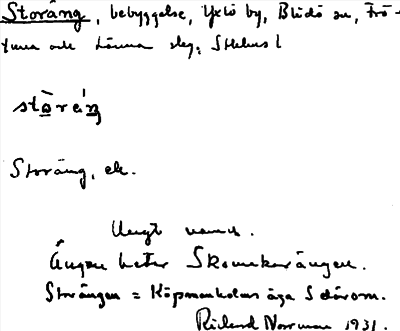 Storäng, bebyggelse, Yxlö by, Blidö sn, Frö-
tuna och Länna slg, Sthlms l
Storäng, ek.
Ungt namn.
Ängen heter Skomakarängen.
Storängen = Köpmanholms äga S därom.
Rickard Norrman 1931.